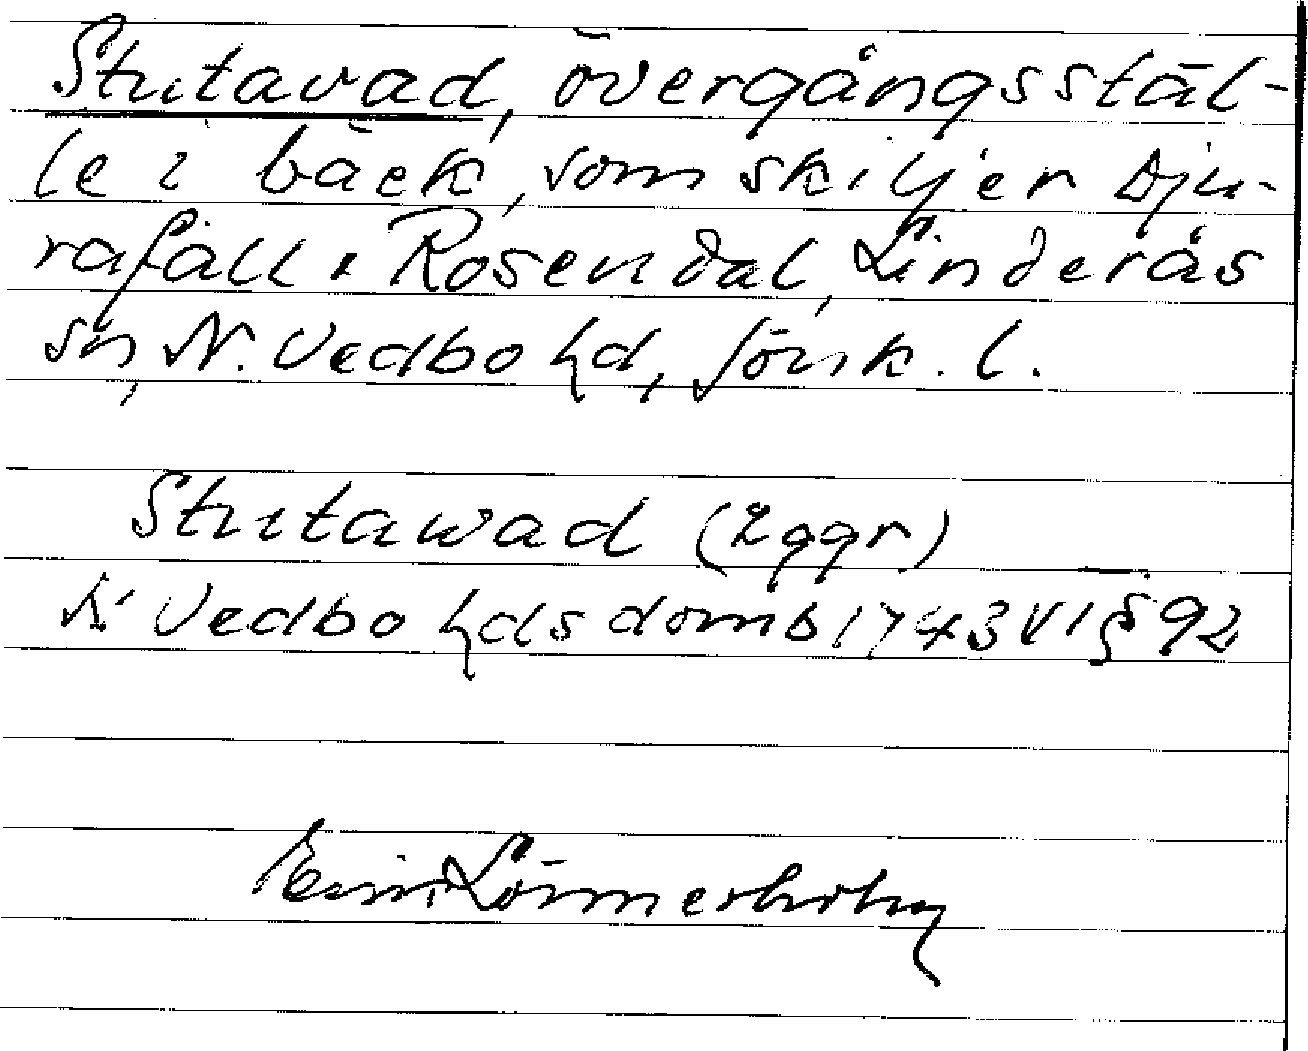 Stutavad, övergångsstäl-
le i bäck, som skiljer Dju-
rafäll o. Rosendal, Linderås
sn, N. Vedbo hd, Jönk. l.
Stutawad (2ggr)
N. Vedbo hds domb 1743 VI § 92
Linnerholm